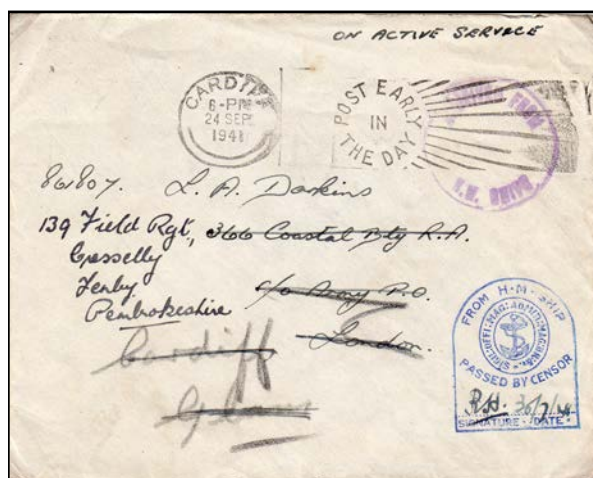 ON ACTIVE SERVICE
CARDIFF
6-PM
24 SEP
1941
POST EARLY
IN
THE DAY
FROM
H.M. SHIPS
861807. L. A. Daskins
139 Field Rgt, 366 Coastal Bty R.A.
Cresselly
Tenby
Pembrokeshire
c/o Army P.O.
London.
Cardiff
FROM H·M·SHIP
PASSED BY CENSOR
R.H.
SIGNATURE · DATE ·